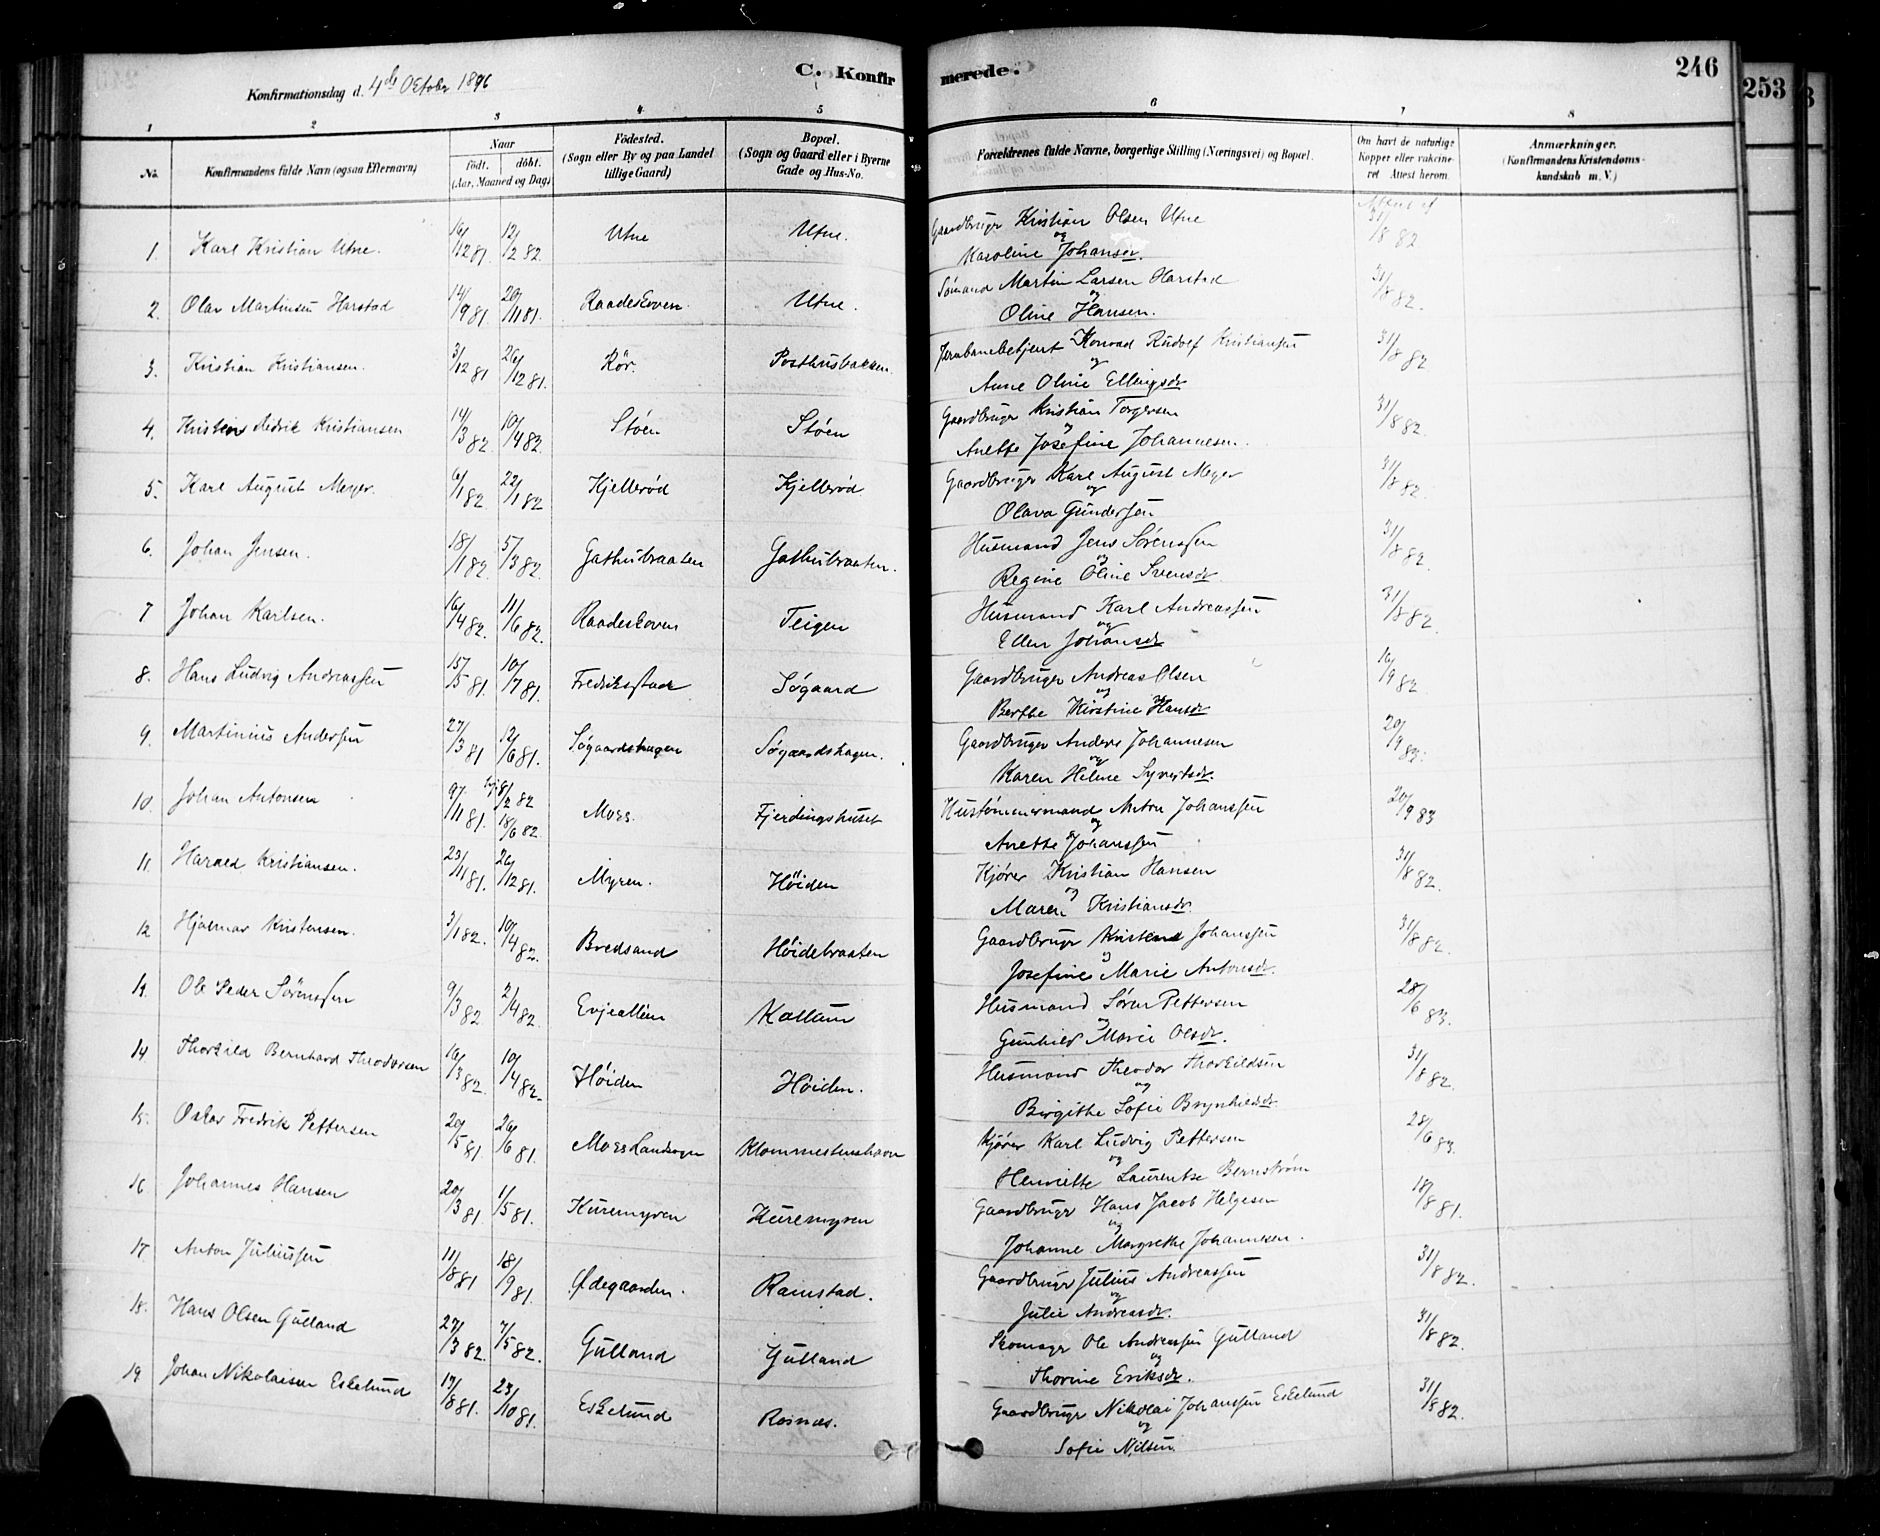 C. Konfirmerede.
246
253
Konfirmationsdag d. 4de October 1896
1 2 3 4 5 6 7 8
No. Konfirmandens fulde Navn (ogsaa Efternavn) Naar födt. döbt. (Aar, Maaned og Dag) Födested. (Sogn eller By og paa Landet tillige Gaard) Bopæl. (Sogn og Gaard eller i Byerne Gade og Hus-No. Forældrenes fulde Navne, borgerlige Stilling (Næringsvei) og Bopæl. Om havt de naturlige Kopper eller vakcineret Attest herom. Anmærkninger. (Konfirmandens Kristendomskundskab m. V.)
Attest af
1. Karl Kristian Utne. 16/12 81. 12/2 82. Utne Utne. Gaardbruger Kristian Olsen Utne 31/8 82
og Karoline Johansdr.
2. Olav Martinsen Harstad 14/9 81. 20/11 81. Raadeskoven. Utne. Sömand Martin Larsen Harstad 31/8 82.
og Oline Hansen.
3. Kristian Kristiansen. 3/12 81 26/12 81. Rör. Posthusbakken. Jernbanebetjent Konrad Rudolf Kristiansen 31/8 82
og Anne Oline Ellingsdr
4. Kristian Fredrik Kristiansen 14/3 82 10/4 82. Stöen Stöen Gaardbruger Kristian Torgersen 31/8 82.
og Anette Josefine Johannesen.
5. Karl August Meyer. 6/1 82 22/1 82 Kjellerød Kjellerød Gaardbruger Karl August Meyer 31/8 82.
og Olava Gundersen
6. Johan Jensen. 18/1 82. 5/3 82. Gathusbraaten Gathusbraaten. Husmand Jens Sörenssen 31/8 82.
og Regine Oline Svensdr.
7 Johan Karlsen. 16/4 82. 11/6 82. Raadeskoven Teigen Husmand Karl Andreassen 31/8 82.
og Ellen Johansdr
8. Hans Ludvig Andreassen 15/5 81. 10/7 81. Fredrikstad Søgaard Gaardbruger Andreas Olsen 16/9 82.
og Berthe Kirstine Hansdr
9. Martinius Andersen 27/3 81 12/6 81. Søgaardshagen Søgaardshagen. Gaardbruger Anders Johannesen 20/9 83.
og Karen Helene Syvertsdr.
10. Johan Antonsen 9/11 81. 8/2 82 18/6 82. Moss. Fjerdingshuset Hustömmermand Anton Johanssen 20/9 83
og Anette Johanssen
11. Harald Kristiansen. 23/11 81. 26/12 81. Myren. Höiden Kjører Kristian Hansen 31/8 82.
og Maren Kristiansdr.
12 Hjalmar Kristensen. 3/1 82. 10/4 82. Bredsand Höidebraaten Gaardbruger Kristen Johanssen 31/8 82.
og Josefine Marie Antonsdr.
13. Ole Peder Sørenssen 9/3 82 2/4 82. Evjeallien Kallum Husmand Sören Pettersen 28/6 83.
og Gunhild Marie Olsdr.
14 Thorkild Bernhard Theodorsen 16/3 82 10/4 82. Höiden Höiden. Husmand Theodor Thorkildsen 31/8 82.
og Birgithe Sofie Brynhildsdr.
15. Oskar Fredrik Pettersen 20/5 81. 26/6 81. Moss Landsogn Klommestenshavn Kjører Karl Ludvig Pettersen 28/6 83.
og Henriette Laurentse Bernström
16 Johannes Hansen 20/3 81 1/5 81. Kuremyren Kuremyren Gaardbruger Hans Jacob Helgesen 18/8 81.
og Johanne Margrethe Johannesen.
17. Anton Juliussen 11/8 81 18/9 81. Ødegaarden. Ramstad. Gaardbruger Julius Andreassen 31/8 82.
og Julie Andreasdr.
18. Hans Olsen Gulland 27/3 82. 7/5 82. Gulland Gulland Skomager Ole Andreassen Gulland 31/8 82.
og Thorine Eriksdr.
19 Johan Nikolaisen Eskelund 17/8 81. 23/10 81. Eskelund Rosnæs. Gaardbruger Nikolai Johanssen Eskelund 31/8 82.
og Sofie Nilsen